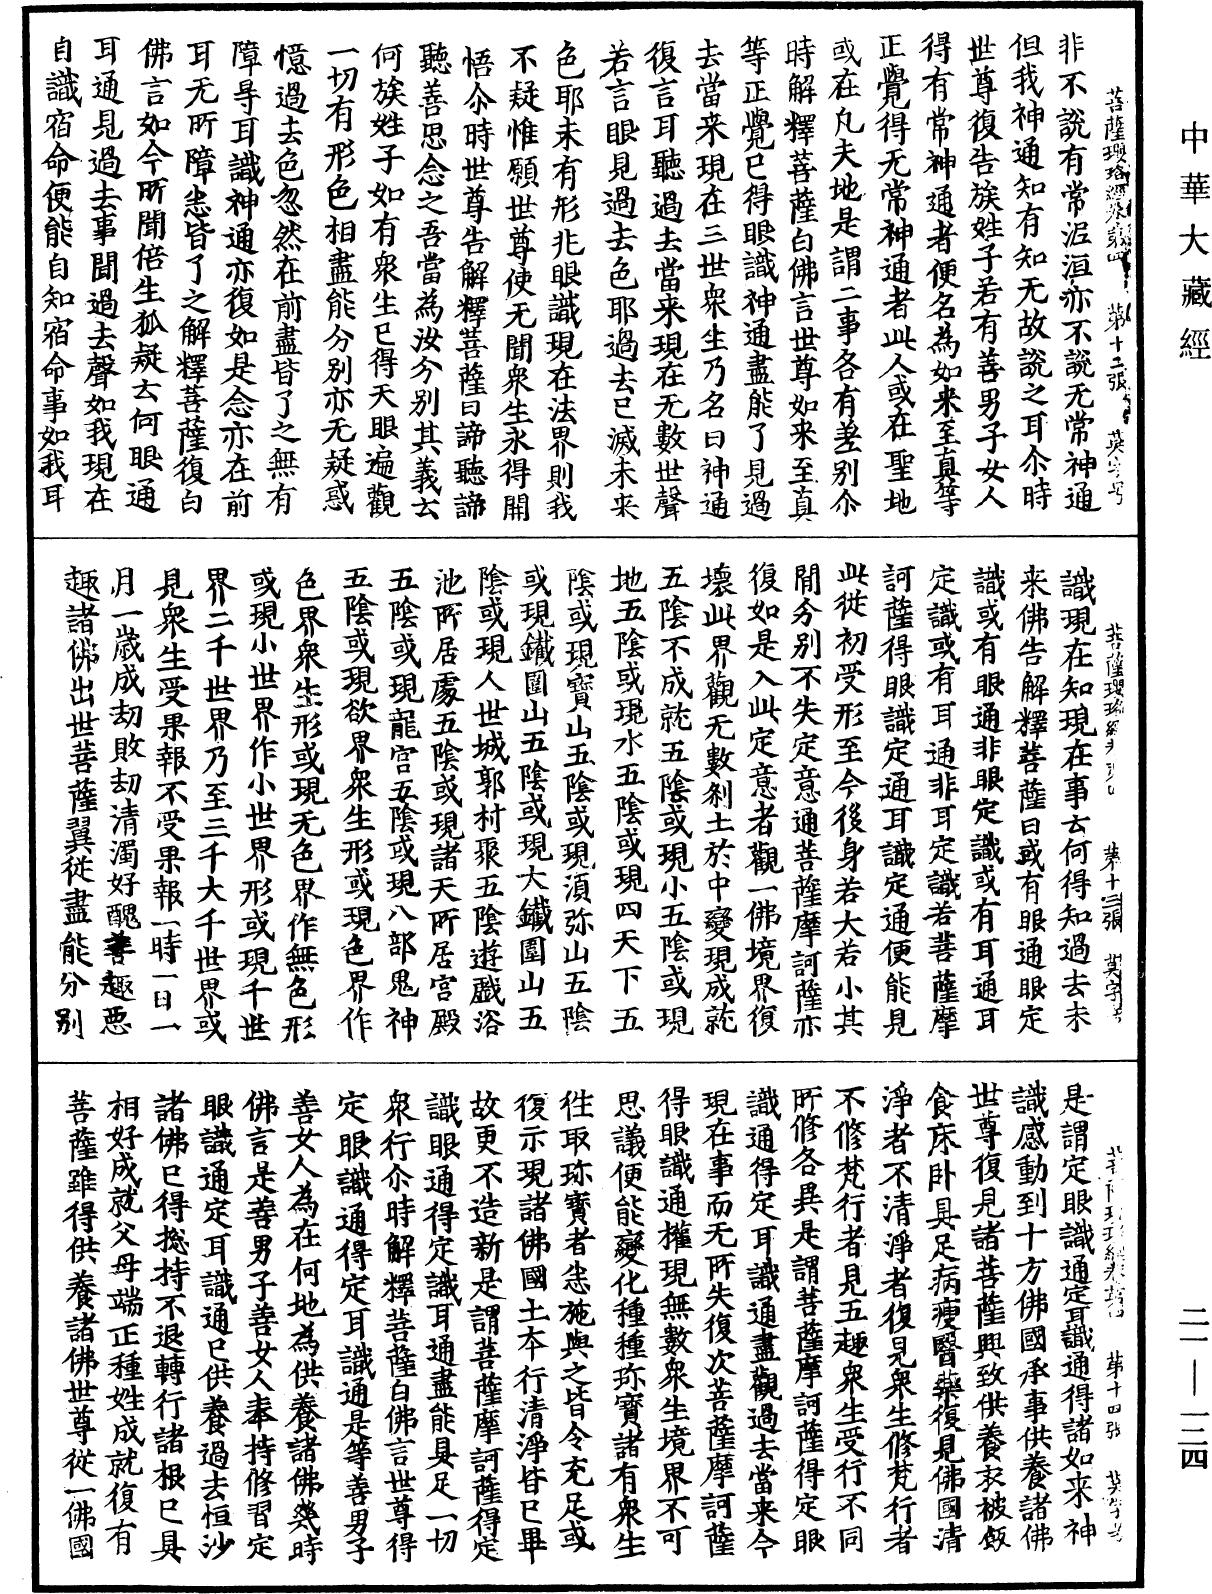 中華大藏經
菩薩瓔珞經卷第四 第十二張
非不說有常泥洹亦不說无常神通
但我神通知有知无故說之耳尒時
世尊復告族姓子若有善男子女人
得有常神通者便名為如來至真等
正覺得无常神通者此人或在聖地
或在凡夫地是謂二事各有差別尒
時解釋菩薩白佛言世尊如來至真
等正覺已得眼識神通盡能了見過
去當來現在三世眾生乃名曰神通
復言耳聽過去當来現在无數世聲
若言眼見過去色耶過去已滅未来
色耶未有形兆眼識現在法界則我
不疑惟願世尊使无聞衆生永得開
悟尒時世尊告解釋菩薩曰諦聽諦
聽善思念之吾當為汝分別其義云
何族姓子如有衆生已得天眼遍觀
一切有形色相盡能分別亦无疑惑
憶過去色忽然在前盡皆了之無有
障㝵耳識神通亦復如是念亦在前
耳无所障悉皆了之解釋菩薩復白
佛言如今所聞倍生狐疑云何眼通
耳通見過去事聞過去聲如我現在
自識宿命便能自知宿命事如我耳
菩薩瓔珞經卷第四 第十三張
識現在知現在事云何得知過去未
来佛告解釋菩薩曰或有眼通眼定
識或有眼通非眼定識或有耳通耳
定識或有耳通非耳定識若菩薩摩
訶薩得眼識定通耳識定通便能見
此從初受形至今後身若大若小其
間分別不失定意通菩薩摩訶薩亦
復如是入此定意者觀一佛境界復
壞此界觀无數剎土於中變現成就
五陰不成就五陰或現小五陰或現
地五陰或現水五陰或現四天下五
陰或現寶山五陰或現湏弥山五陰
或現鐵圍山五陰或現大鐵圍山五
陰或現人世城郭村聚五陰遊戲浴
池所居處五陰或現諸天所居宮殿
五陰或現龍宮五陰或現八部鬼神
五陰或現欲界衆生形或現色界作
色界衆生形或現无色界作無色形
或現小世界作小世界形或現千世
界二千世界乃至三千大千世界或
見衆生受果報不受果報一時一日一
月一歲成劫敗劫清濁好醜善趣惡
趣諸佛出世菩薩翼從盡能分別
第十四張
是謂定眼識通定耳識通得諸如來神
識感動到十方佛國承事供養諸佛
世尊復見諸菩薩興致供養衣被飯
食床卧具足病瘦醫藥復見佛國清
淨者不清淨者復見衆生修梵行者
不修梵行者見五趣衆生受行不同
所修各異是謂菩薩摩訶薩得定眼
識通得定耳識通盡觀過去當来今
現在事而无所失復次菩薩摩訶薩
得眼識通權現無數衆生境界不可
思議便能變化種種珎寶諸有衆生
往取珎寶者悉施與之皆令充足或
復示現諸佛國土本行清淨皆已畢
故更不造新是謂菩薩摩訶薩得定
識眼通得定識耳通盡能具足一切
衆行尒時解釋菩薩白佛言世尊得
定眼識通得定耳識通是等善男子
善女人為在何地為供養諸佛幾時
佛言是善男子善女人奉持修習定
眼識通定耳識通已供養過去恒沙
諸佛已得揔持不退轉行諸根已具
相好成就父母端正種姓成就復有
菩薩雖得供養諸佛世尊從一佛國
二一—一三四